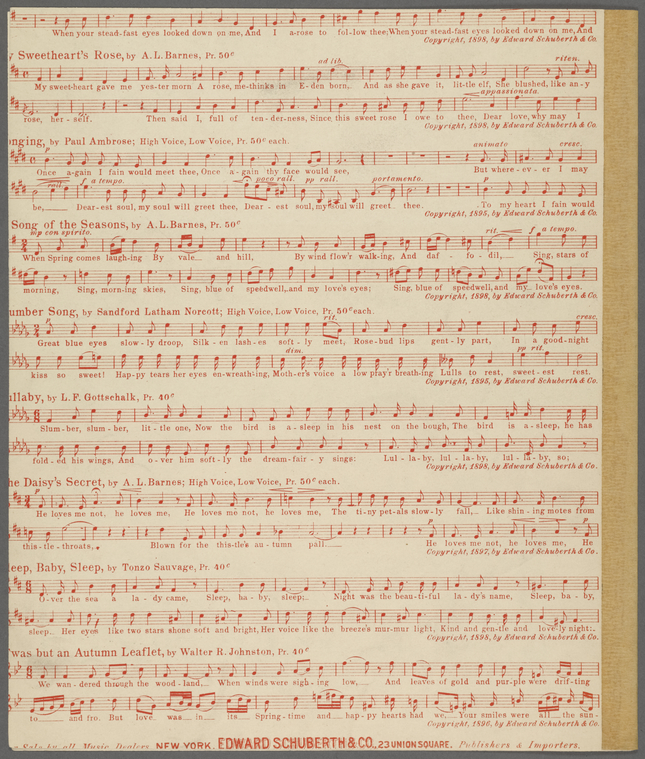 When your stead-fast eyes looked down on me, And I a-rose to fol-low thee; When your stead-fast eyes looked down on me, And
Copyright, 1898, by Edward Schuberth & Co.
y Sweetheart's Rose, by A. L. Barnes, Pr. 50c
ad lib. riten.
My sweet-heart gave me yes-ter morn A rose, me-thinks in E-den born, And as she gave it, lit-tle elf, She blushed, like an-y
appassionata.
rose, her-self. Then said I, full of ten-der-ness, Since this sweet rose I owe to thee, Dear love, why may I
Copyright, 1898, by Edward Schuberth & Co.
onging, by Paul Ambrose; High Voice, Low Voice, Pr. 50c each.
animato cresc.
Once a-gain I fain would meet thee, Once a-gain thy face would see, But where-ev-er I may
rall. f a tempo. poco rall. pp rall. portamento. p
be, Dear-est soul, my soul will greet thee, Dear-est soul, my soul will greet thee. To my heart I fain would
Copyright, 1895, by Edward Schuberth & Co.
Song of the Seasons, by A. L. Barnes, Pr. 50c
mp con spirito. rit. f a tempo.
When Spring comes laugh-ing By vale and hill, By wind flow'r walk-ing, And daf-fo-dil, Sing, stars of
morning, Sing, morn-ing skies, Sing, blue of speedwell, and my love's eyes; Sing, blue of speedwell, and my love's eyes.
Copyright, 1898, by Edward Schuberth & Co.
umber Song, by Sandford Latham Norcott; High Voice, Low Voice, Pr. 50c each.
p rit. cresc.
Great blue eyes slow-ly droop, Silk-en lash-es soft-ly meet, Rose-bud lips gent-ly part, In a good-night
dim. pp rit.
kiss so sweet! Hap-py tears her eyes en-wreath-ing, Moth-er's voice a low pray'r breath-ing Lulls to rest, sweet-est rest.
Copyright, 1895, by Edward Schuberth & Co.
ullaby, by L. F. Gottschalk, Pr. 40c
Slum-ber, slum-ber, lit-tle one, Now the bird is a-sleep in his nest on the bough, The bird is a-sleep, he has
fold-ed his wings, And o-ver him soft-ly the dream-fair-y sings: Lul-la-by, lul-la-by, lul-la-by, so;
Copyright, 1898, by Edward Schuberth & Co.
he Daisy's Secret, by A. L. Barnes; High Voice, Low Voice, Pr. 50c each.
p
He loves me not, he loves me, He loves me not, he loves me, The ti-ny pet-als slow-ly fall, Like shin-ing motes from
p p
this-tle-throats, Blown for the this-tle's au-tumn pall He loves me not, he loves me, He
Copyright, 1897, by Edward Schuberth & Co.
leep, Baby, Sleep, by Tonzo Sauvage, Pr. 40c
O-ver the sea a la-dy came, Sleep, ba-by, sleep; Night was the beau-ti-ful la-dy's name, Sleep, ba-by,
sleep. Her eyes like two stars shone soft and bright, Her voice like the breeze's mur-mur light, Kind and gen-tle and love-ly night:
Copyright, 1898, by Edward Schuberth & Co.
'was but an Autumn Leaflet, by Walter R. Johnston, Pr. 40c
We wan-dered through the wood-land, When winds were sigh-ing low, And leaves of gold and pur-ple were drift-ing
to and fro. But love was in its Spring-time and hap-py hearts had we, Your smiles were all the sun-
Copyright, 1896, by Edward Schuberth & Co.
Sale by all Music Dealers. NEW YORK, EDWARD SCHUBERTH & CO., 23 UNION SQUARE. Publishers & Importers.